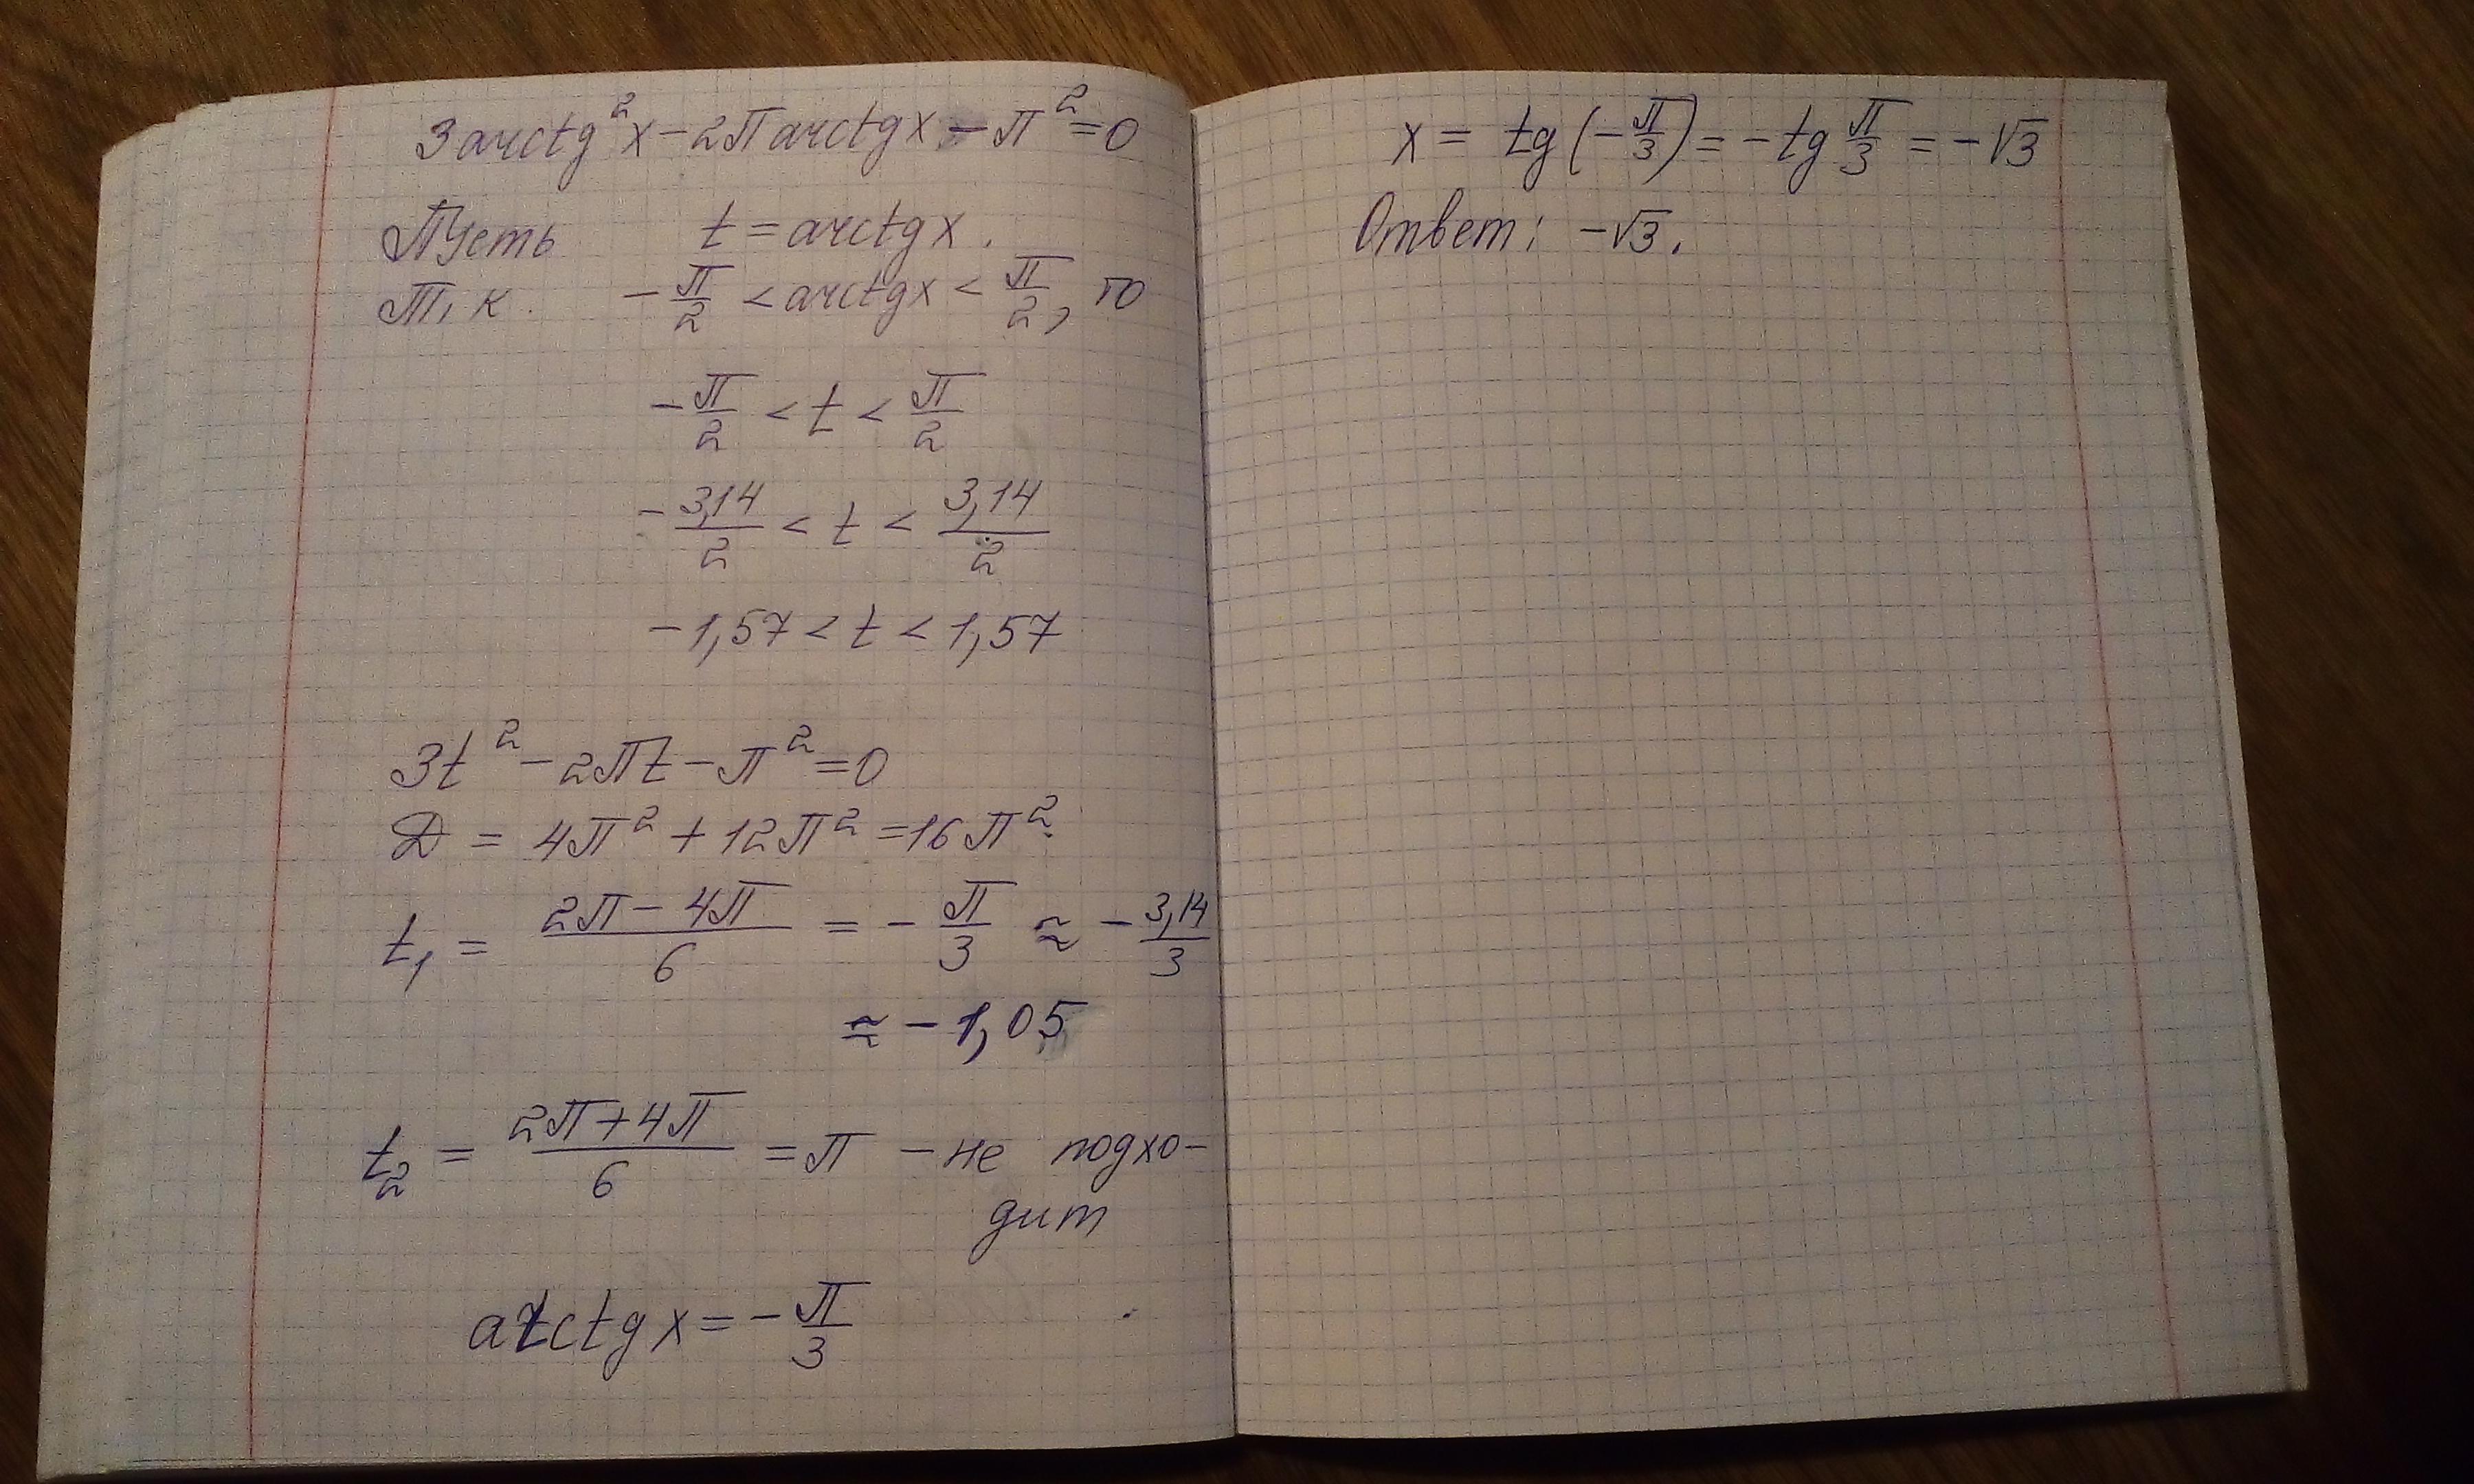 3 arctg²x − 2π arctgx − π² = 0
Пусть t = arctgx.
Т. к. −π/2 < arctgx < π/2, то
−π/2 < t < π/2
−3,14/2 < t < 3,14/2
−1,57 < t < 1,57
3t² − 2πt − π² = 0
D = 4π² + 12π² = 16π².
t₁ = (2π − 4π)/6 = −π/3 ≈ −3,14/3
≈ −1,05
t₂ = (2π + 4π)/6 = π − не подхо-
дит
arctgx = −π/3
x = tg(−π/3) = −tg π/3 = −√3
Ответ: −√3.